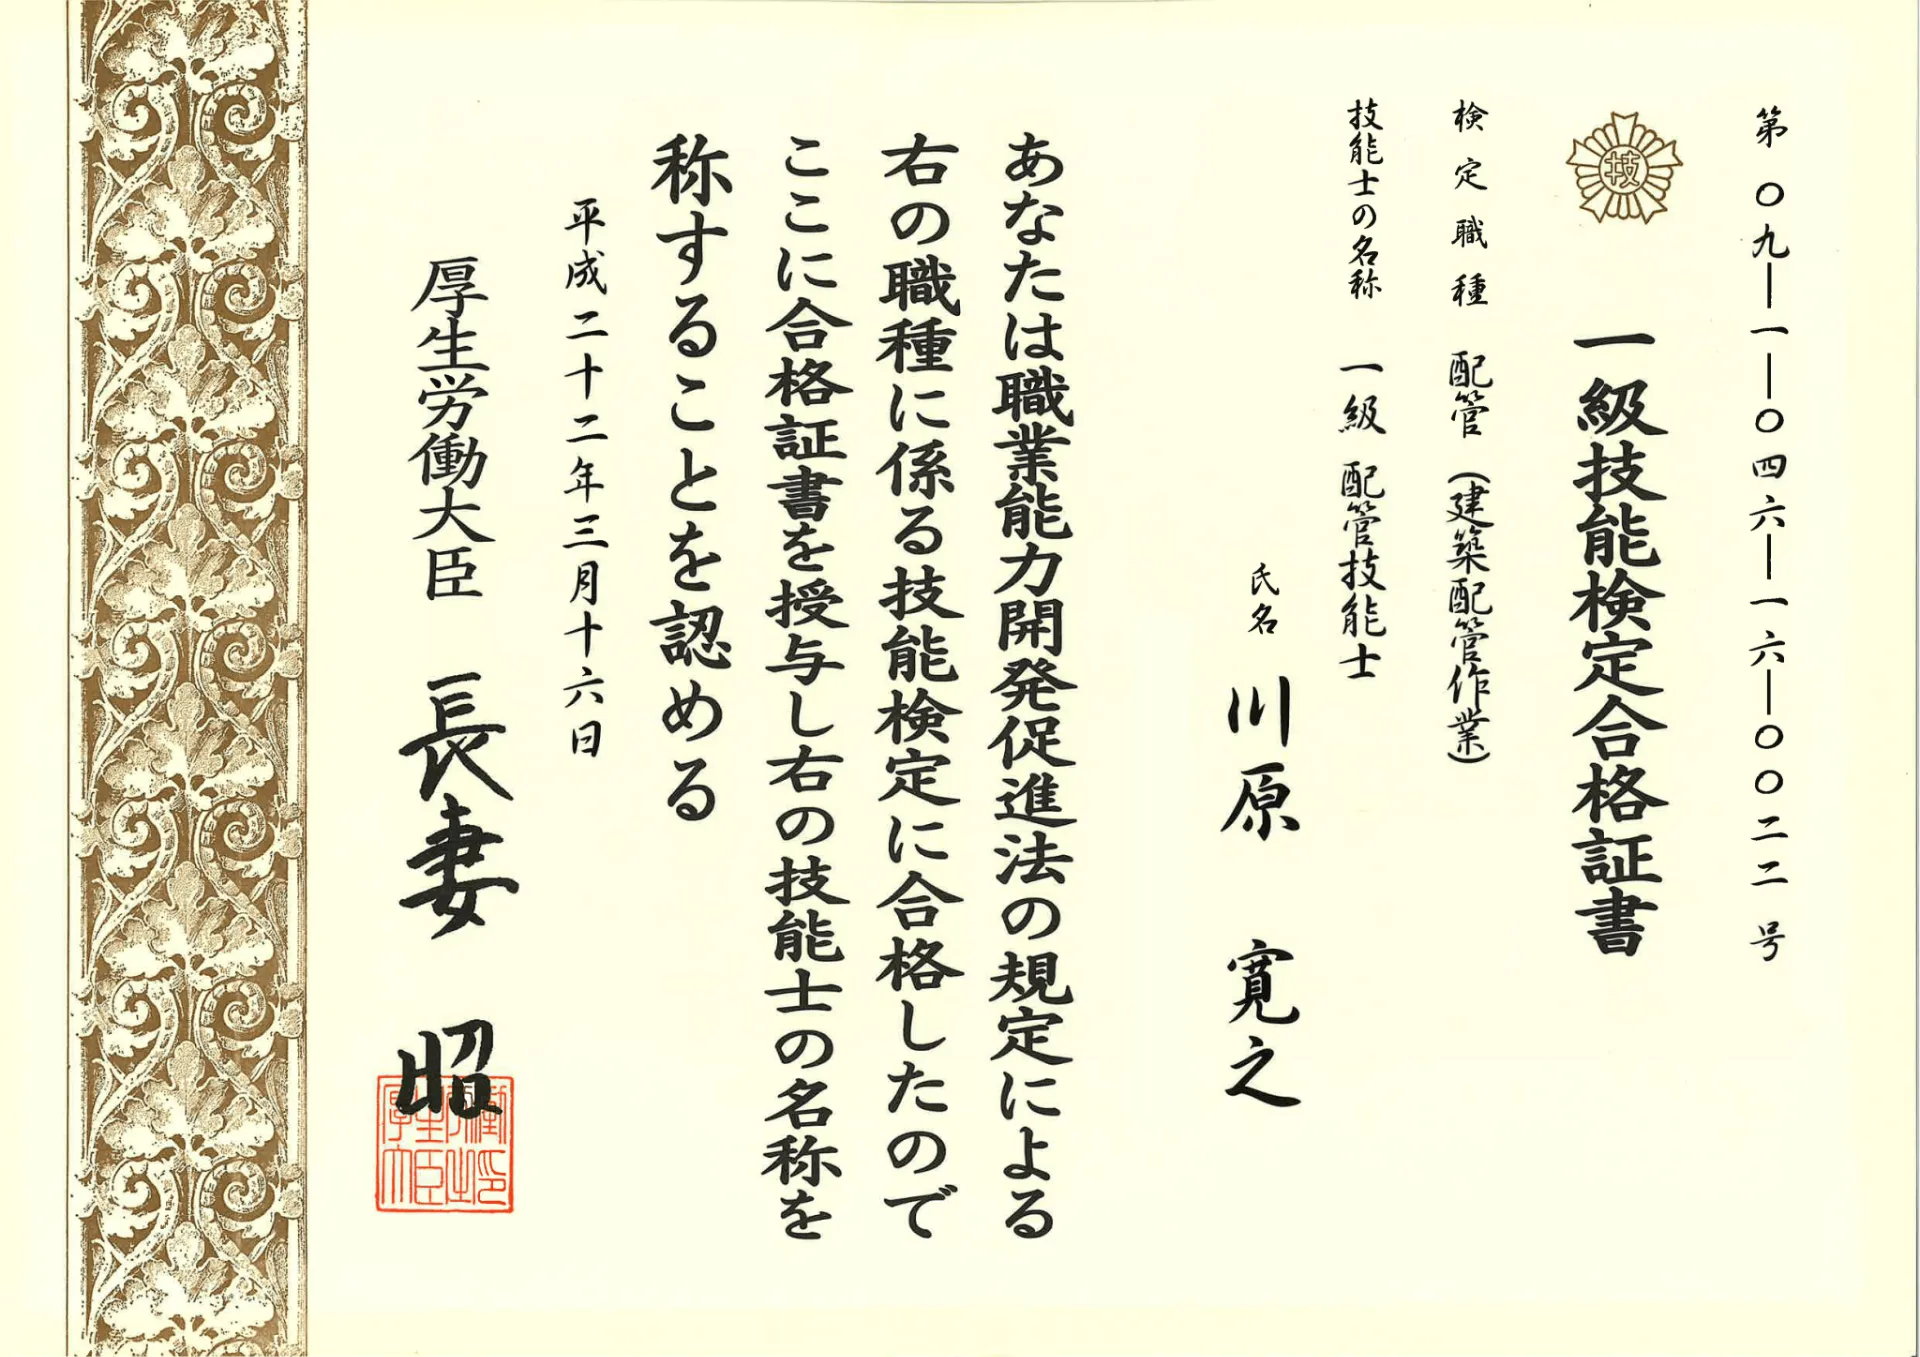 第〇九―一―〇四六―一六―〇〇二二号
技
一級技能検定合格証書
検定職種 配管(建築配管作業)
技能士の名称 一級 配管技能士
氏名 川原 寛之
あなたは職業能力開発促進法の規定による
右の職種に係る技能検定に合格したので
ここに合格証書を授与し右の技能士の名称を
称することを認める
平成二十二年三月十六日
厚生労働大臣 長妻 昭